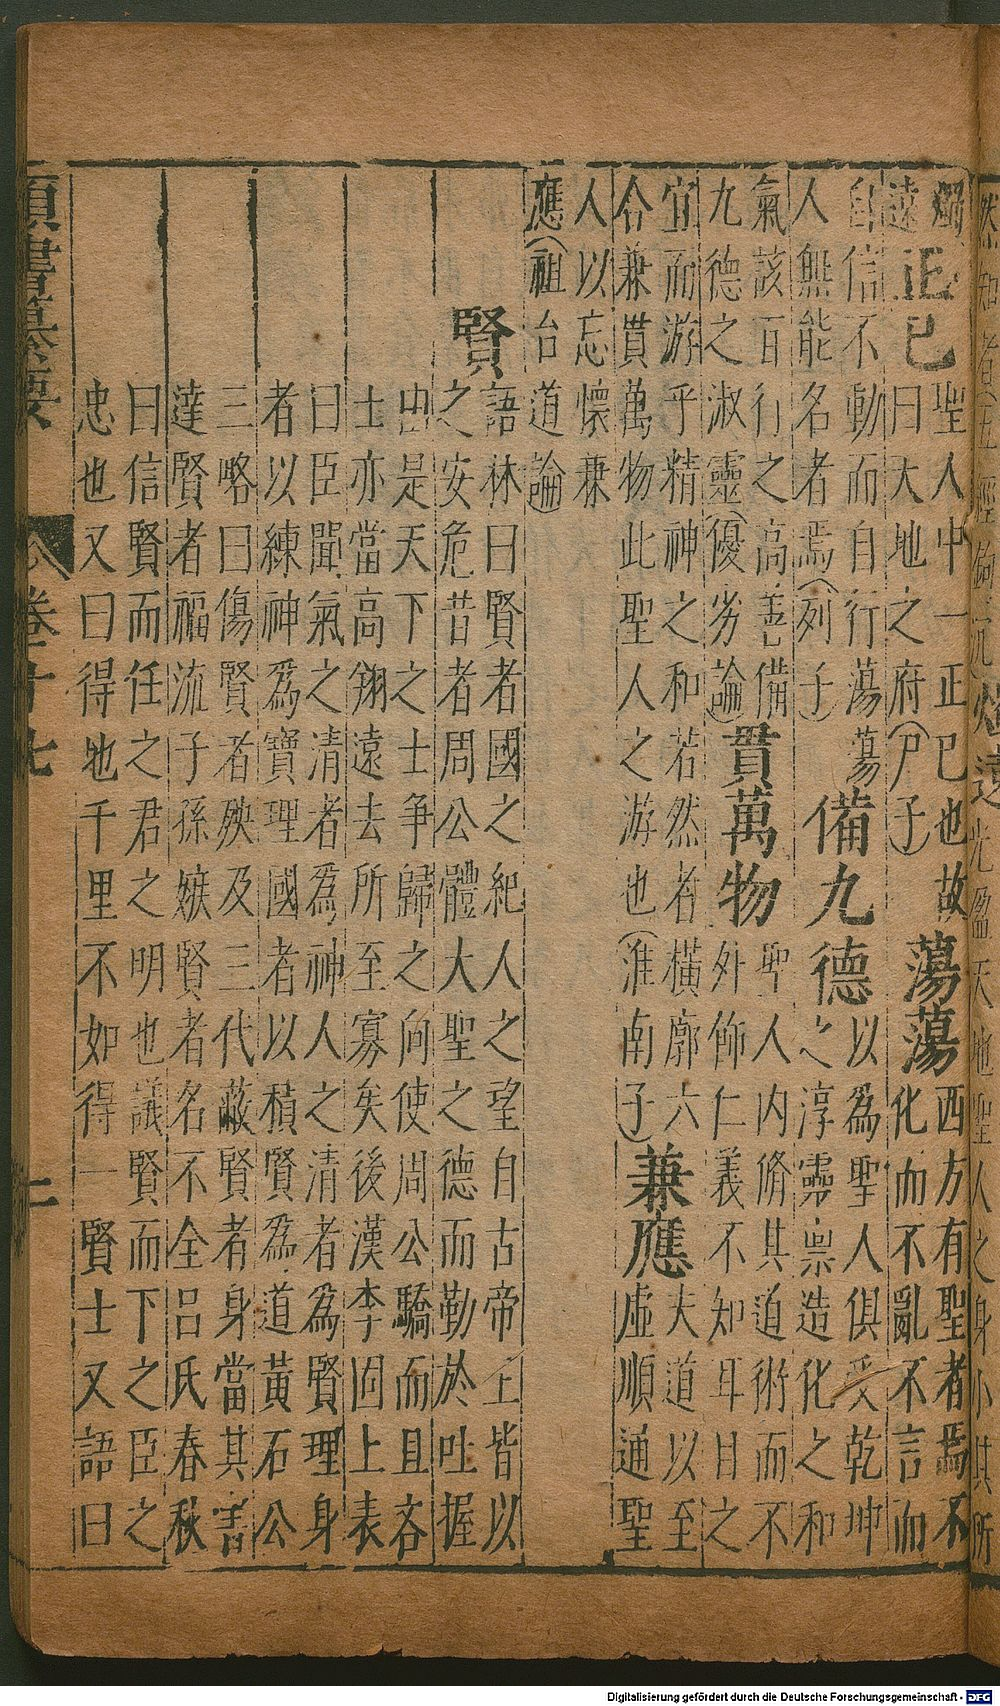 然知者(五經鉤沉)燭遠光盈天地聖人之身小其所
燭
遠
正己
聖人中一正巳也故
曰大地之府(尸子)
蕩蕩
西方有聖者焉不
化而不亂不言而
自信不動而自行蕩蕩
人無能名者焉(列子)
備九德
以為聖人俱受乾坤
之淳靈稟造化之和
氣該百行之高善備
九德之淑靈(優劣論)
貫萬物
聖人内脩其道術而不
外飾仁義不知耳目之
宜而游乎精神之和若然者橫廓六
合兼貫萬物此聖人之游也(淮南子)
兼應
夫道以至
虛順通聖
人以忘懷兼
應(祖台道論)
賢
語林曰賢者國之紀人之望自古帝王皆以
之安危昔者周公體大聖之德而勤於吐握
由是天下之士爭歸之向使周公驕而且吝
士亦當高翔遠去所至寡矣後漢李固上表
曰臣聞氣之清者為神人之清者為賢理身
者以練神為寶理國者以積賢為道黃石公
三略曰傷賢者殃及三代蔽賢者身當其害
達賢者福流子孫嫉賢者名不全呂氏春秋
曰信賢而任之君之明也議賢而下之臣之
忠也又曰得地千里不如得一賢士又語曰
類書纂要 卷十七
Digitalisierung gefördert durch die Deutsche Forschungsgemeinschaft - DFG